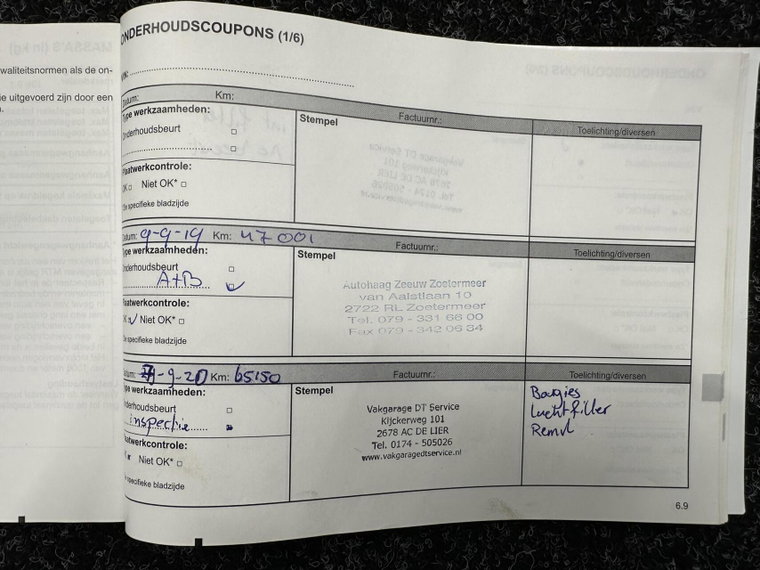 waliteitsnormen als de on-
ie uitgevoerd zijn door een
ONDERHOUDSCOUPONS (1/6)
VIN:
Datum: Km:
Type werkzaamheden:
Onderhoudsbeurt
Plaatwerkcontrole:
OK Niet OK*
Zie specifieke bladzijde
Stempel
Factuurnr.:
Toelichting/diversen
Datum: 9-9-19 Km: 47001
Type werkzaamheden:
Onderhoudsbeurt
A+B
Plaatwerkcontrole:
OK Niet OK*
Zie specifieke bladzijde
Stempel
Factuurnr.:
Autohaag Zeeuw Zoetermeer
van Aalstlaan 10
2722 RL Zoetermeer
Tel. 079 - 331 66 00
Fax 079 - 342 06 34
Toelichting/diversen
Datum: -9-20 Km: 65150
Type werkzaamheden:
Onderhoudsbeurt
inspectie
Plaatwerkcontrole:
Niet OK*
Zie specifieke bladzijde
Stempel
Factuurnr.:
Vakgarage DT Service
Kijckerweg 101
2678 AC DE LIER
Tel. 0174 - 505026
www.vakgaragedtservice.nl
Toelichting/diversen
Bougies
Luchtfilter
Remvl
6.9